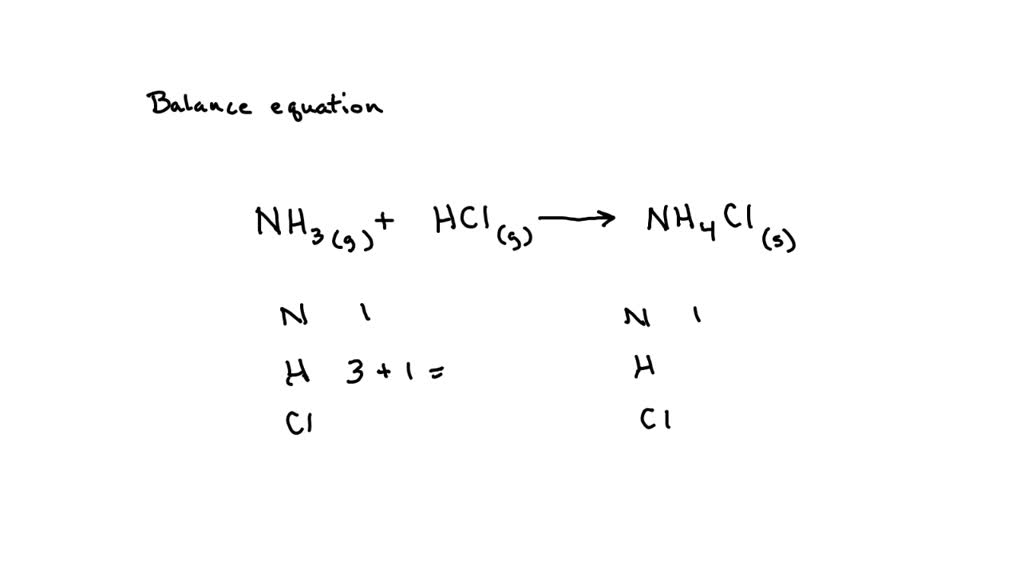 Balance equation
NH₃(g) + HCl(g) ⟶ NH₄Cl(s)
N 1 N 1
H 3 + 1 = H
Cl Cl